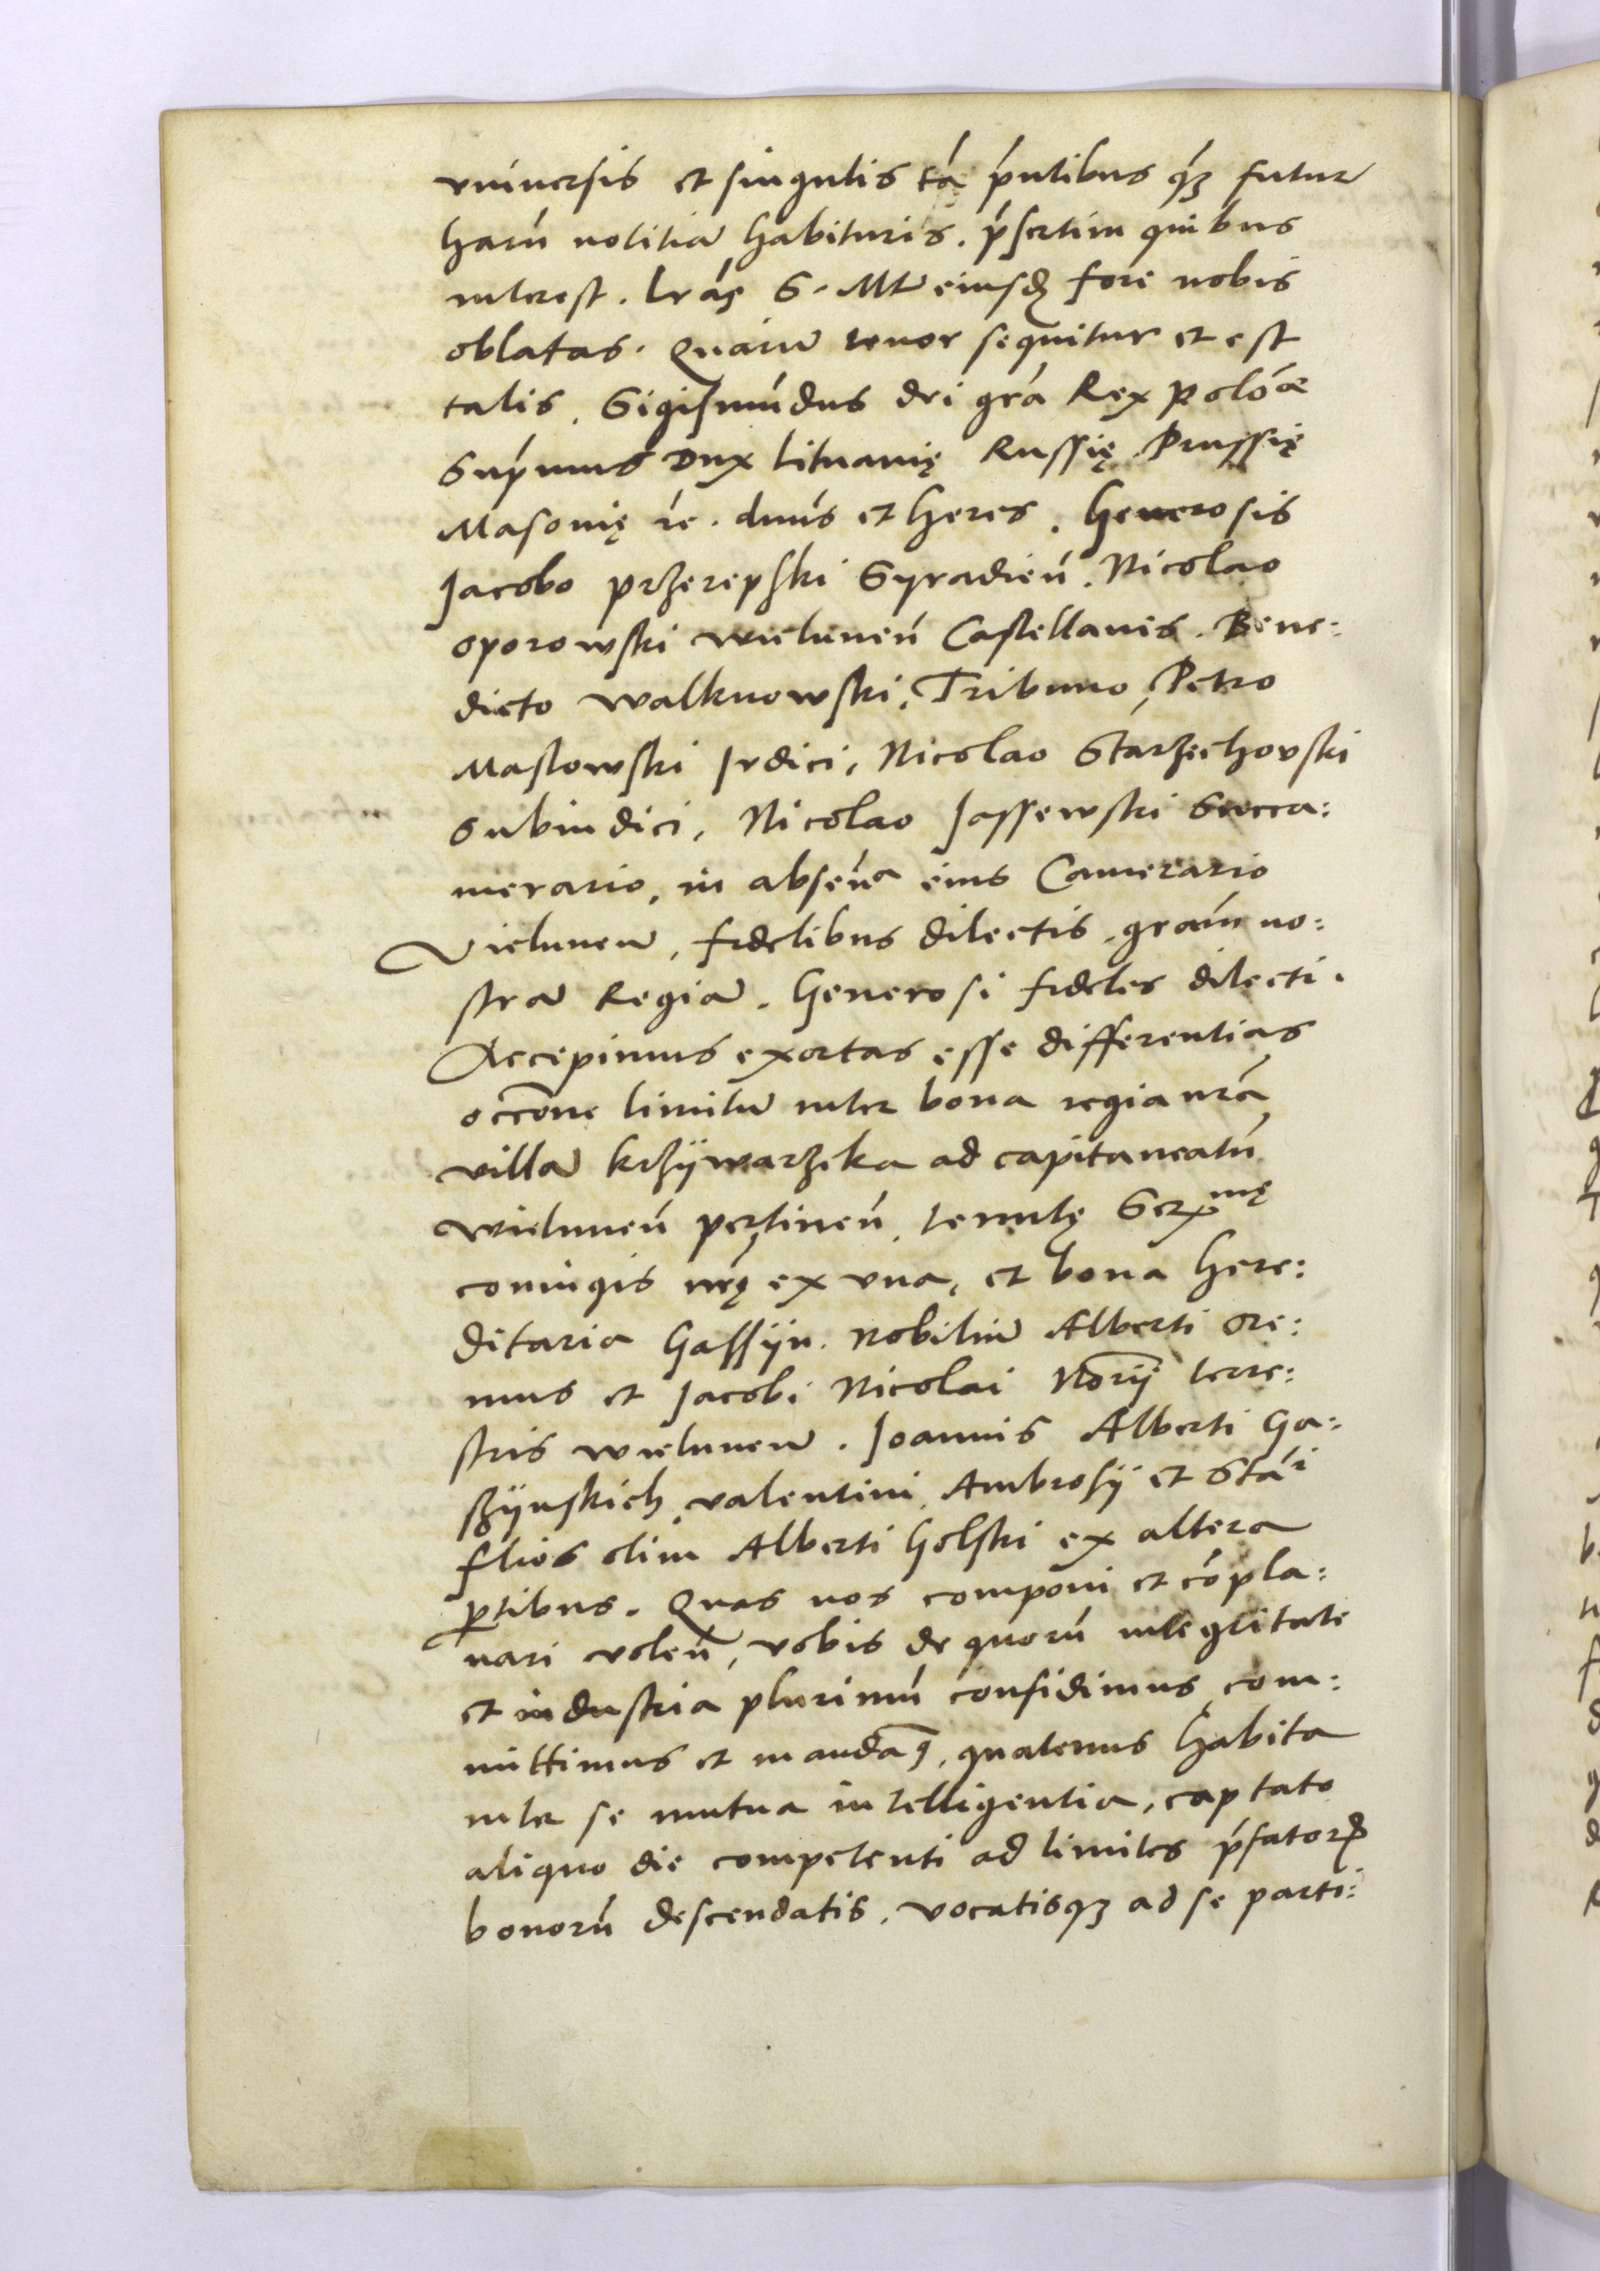 vniuersis et singulis tá pńtibus qȝ futur
harū notitia habituris. pŕsertim quibus
interest. Lrás S. Mt eiusdȝ fore nobis
oblatas. Quarū tenor sequitur et est
talis. Sigismūdus dei grá Rex poloæ
Supŕmus Dux lituanię Russię Prussię
Masouię ꝛc. dnūs et heres. Generosis
Jacobo przerepski Syradień. Nicolao
oporowski wieluneń Castellanis. Bene:
dicto walknowski, Tribuno, Petro
Maslowski Judici, Nicolao Starzechovski
subiudici, Nicolao Jassewski Succa:
merario, in absena eius Camerario
Vielunen, fidelibus dilectis, gram no:
stra Regia. Generosi fideles dilecti.
Accepimus exortas esse differentias
occone limitū inter bona regia nrā
villa krzywarzeka ad capitaneatū
wieluneń pertineń, tenutę Serxmę
coniugis nrę ex vna, et bona here:
ditaria Gassyn. nobiliū Alberti ore:
mus et Jacobi Nicolai Norij terre:
stris wielunen. Joannis Alberti Ga:
szynskich valentini Ambrosij et Stai
filios olim Alberti Golski ex altera
ꝑtibus. Quas nos componi et cōpla:
nari voleń, vobis de quorū integritate
et industria plurimū confidimus com:
mittimus et mandaꝫ, quatenus habita
inter se mutua intelligentia, captato
aliquo die competenti ad limites pŕfatorꝝ
bonorū descendatis, vocatisqȝ ad se parti: